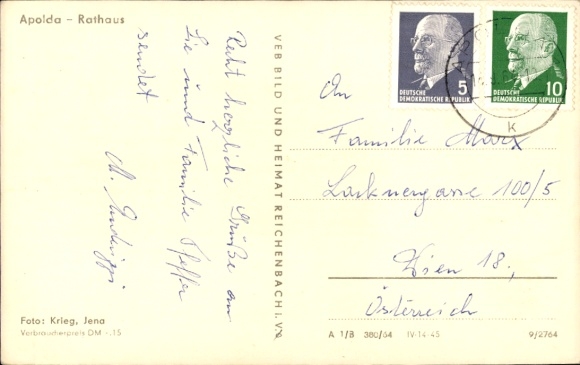 Apolda – Rathaus
Recht herzliche Grüße an
Sie und Familie Pfeffer
sendet
M.
Foto: Krieg, Jena
Verbraucherpreis DM -.15
VEB BILD UND HEIMAT REICHENBACH i. V.
5
DEUTSCHE
DEMOKRATISCHE REPUBLIK
10
DEUTSCHE
DEMOKRATISCHE REPUBLIK
k
An
Familie Marx
Lacknergasse 100/5
Wien 18.,
Österreich
A 1/B 380/64 IV-14-45 9/2764